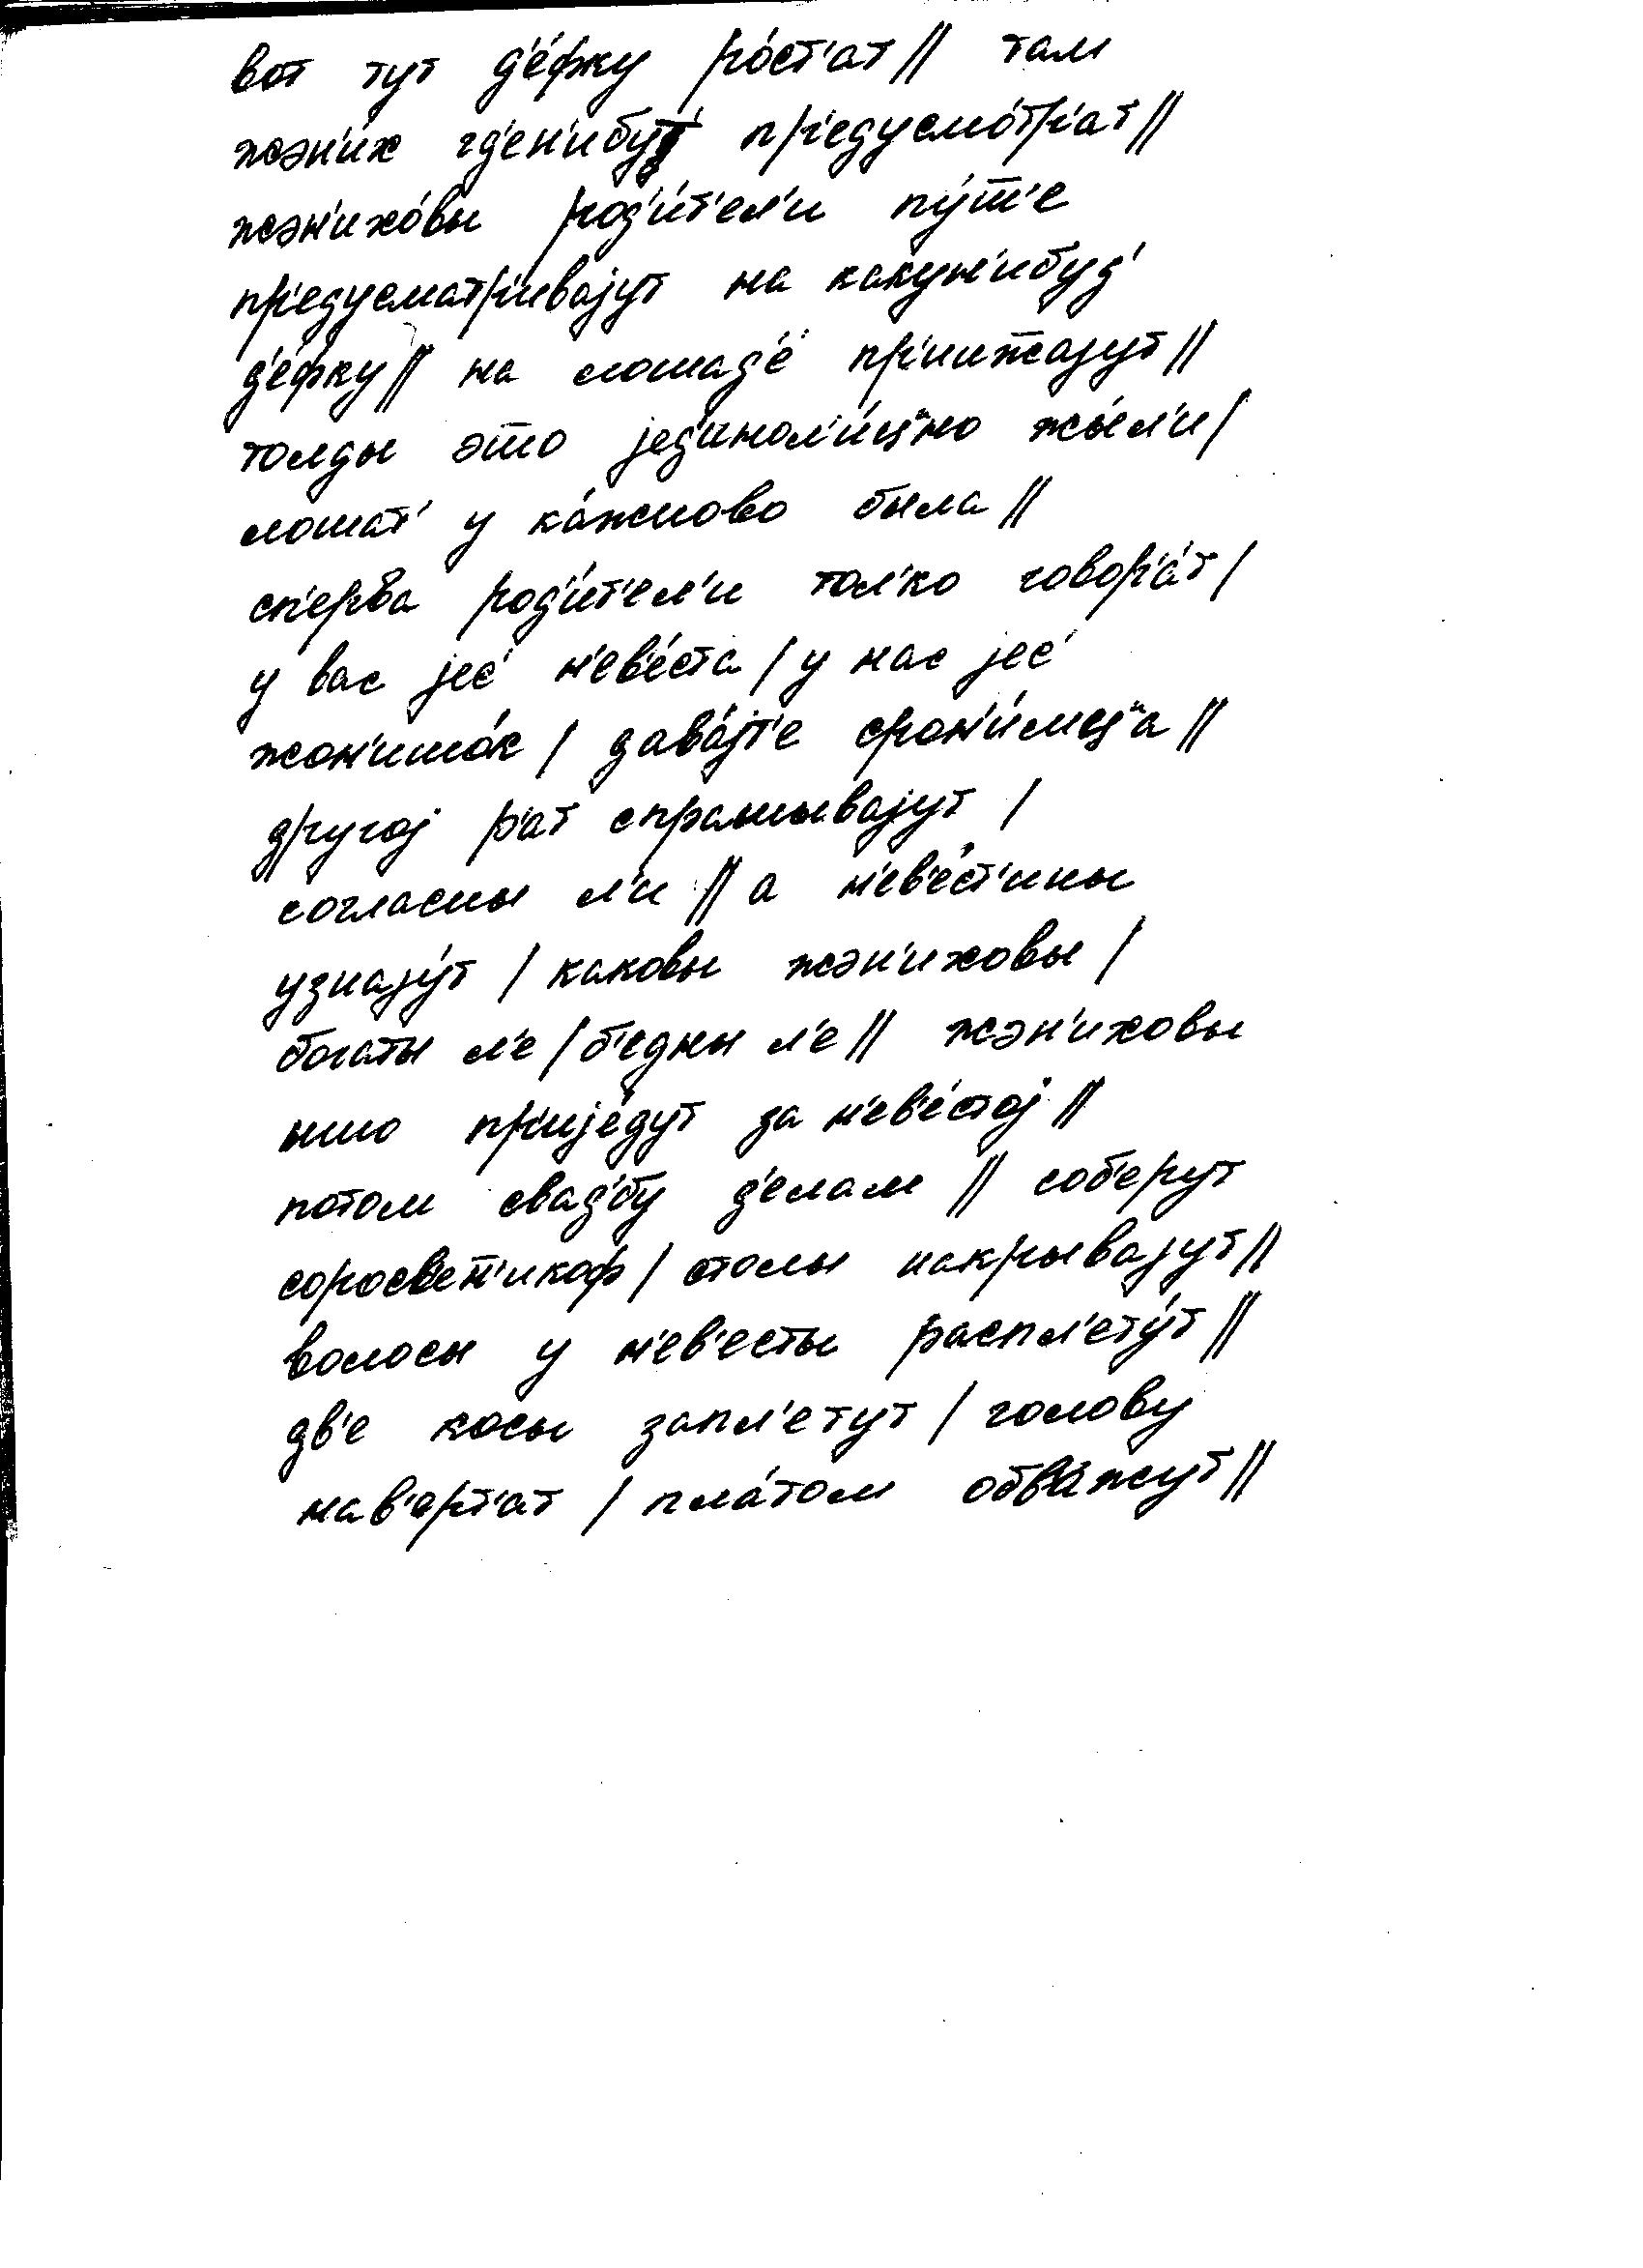 вот тут д'е́фку ро́ст'ат // там
жэн'их гд'ен'ибут' пр'едусмо́тр'ат //
жэн'ихо́вы род'и́т'ел'и пу́т̅'е
пр'едусматр'ивајут на какун'ибуд'
д'е́фку // на лошад'е́ пр'иит̅жајут //
толды э́то јед'инол'и́ц"но жы́л'и /
лошат' у ка́жново была //
сп'ерва род'и́т'ел'и тол'ко говор'а́т /
у вас јес' н'ев'е́ста / у нас јес'
жон'ишо́к / дава́јт'е срон'и́мц"а //
другој р'ат спрашывајут /
согласны л'и // а н'ев'е́ст'ины
узнају́т / каковы жэн'иховы /
богаты л'е / б'едны л'е // жэн'иховы
ишо пр'ије́дут за н'ев'е́стој //
потом свад'бу д'елам // соб'ерут
соросвет̅'икоф / столы накрывајут //
волосы у н'ев'есты распл'ету́т //
дв'е косы запл'етут / голову
нав'ерт'ат / пла́том обва́жут //